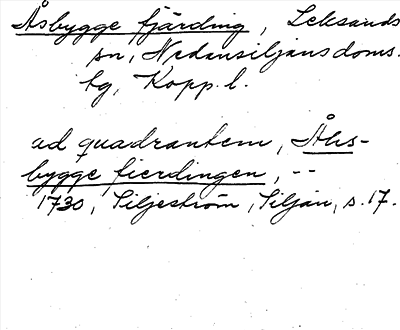 Åsbygge fjärding, Leksands
sn, Nedansiljans doms.
hg, Kopp. l.
ad quadrantem, Åhs-
bygge fierdingen, --
1730, Siljeström, Siljan, s. 17.